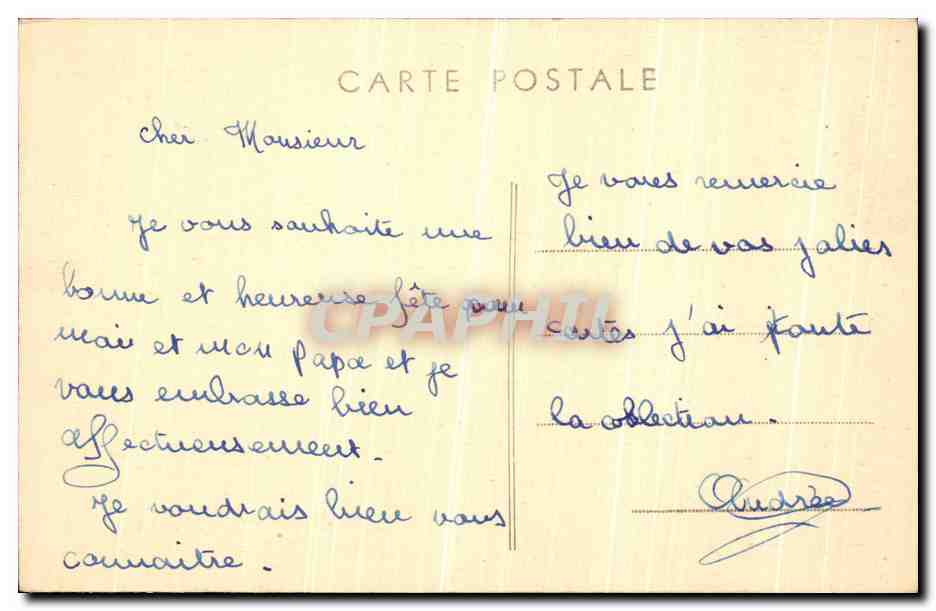 CARTE POSTALE
cher Monsieur
Je vous souhaite une
bonne et heureuse fête pour
moi et mon papa et je
vous embrasse bien
affectueusement.
Je voudrais bien vous
connaitre.
Je vous remercie
bien de vos jolies
cartes j'ai toute
la collection.
Andrée
CPAPHIL